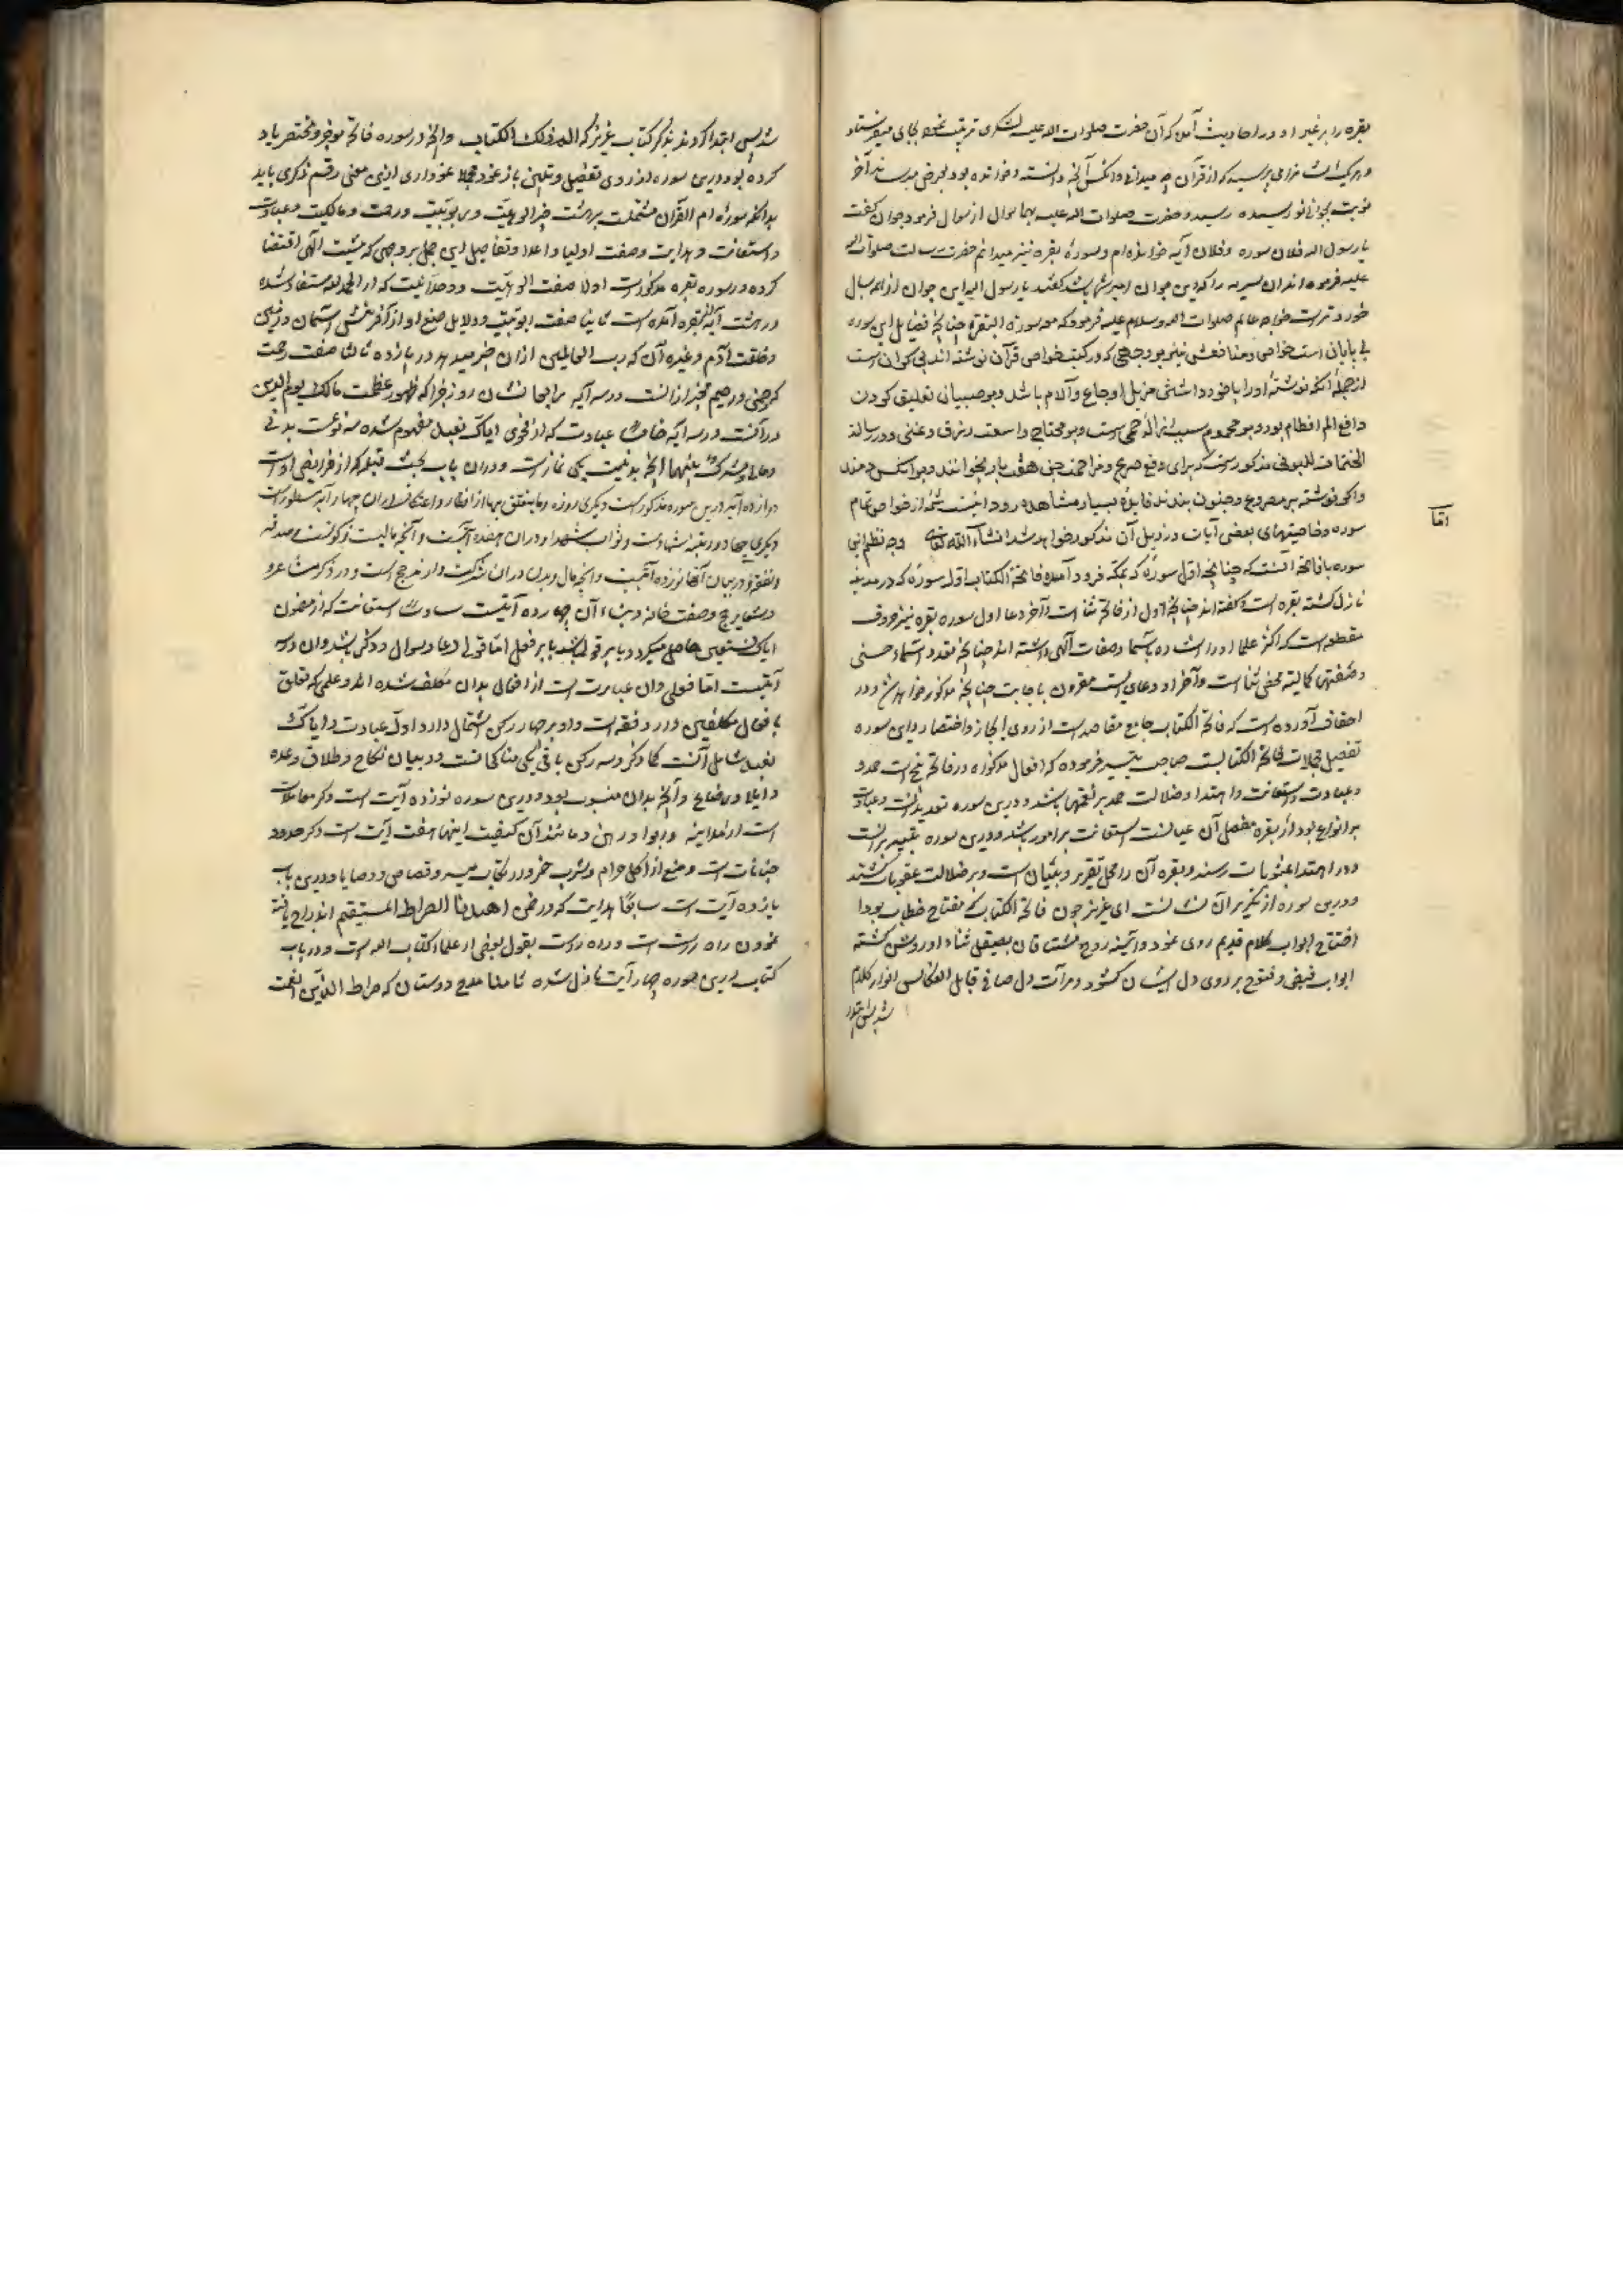 بقره را بر غیر او و در احادیث آمده که آن حضرت صلوات الله علیه لشکری ترتیب نموده بجایی میفرستاد
و هر یک ایشانرا می پرسید که از قرآن چه میدانی و آنکس آنچه دانسته و خوانده بود بعرض میرسانید آخر
نوبت بجوانی نورسیده رسید و حضرت صلوات الله علیه همان سوال از سوال فرمود جوان گفت
یا رسول الله فلان سوره و فلان آیه خوانده ام و سورهٔ بقره نیز میدانم حضرت رسالت صلوات الله
علیه فرمود که این جوان امیر شما باشد گفتند یا رسول الله این جوان از همه بسال
خوردتر است خواجه عالم صلوات الله و سلامه علیه فرمود که معه سورة البقرة چنانچه فضایل این سوره
بی پایان است خواص و منافعش نیز بر وجهی که در کتب خواص قرآن نوشته اند بی کران است
از جمله آنکه نوشتهٔ او را با خود داشتن مزیل اوجاع و آلام باشد و بر صبیان تعلیق کردن
دافع الم افطام بود و بر محموم سبب ازالهٔ حمی است و بر محتاج واسعت رزق و غنی و در رسالهٔ
مذکور است که برای دفع صرع و مزاحمت جن هفت بار بخوانند و بر آنکس دمند
و اگر نوشته بر مصروع و مجنون بندند فایدهٔ بسیار مشاهده رود اینست شمهٔ از خواص تمام
سوره و خاصیتهای بعضی آیات در ذیل آن مذکور خواهد شد انشاء الله تعالی وجه نظم این
سوره با فاتحه آنست که چنانچه اول سورهٔ که بمکه فرود آمده فاتحة الکتاب اول سورهٔ که در مدینه
نازل گشته بقره است و گفته اند چنانچه اول از فاتحه ثنا است و آخر دعا اول سوره بقره نیز حروف
مقطعه است که اکثر علما او را اشاره باسما و صفات الهی داشته اند چنانچه تعدد اسماء حسنی
و صفتهای کمالیه محض ثنا است و آخر او دعای است مقرون باجابت چنانچه مذکور خواهد شد و در
احقاف آورده است که فاتحة الکتاب جامع مقاصد است از روی ایجاز و اختصار و این سوره
تفصیل مجملات فاتحة الکتابست صاحب تیسیر فرموده که افعال مذکوره در فاتحه پنج است حمد و
و عبادت و استعانت و اهتدا و ضلالت حمد بر نعمتها باشد و درین سوره تعدید آنست و عبادت
بر انواع بود از بقره مفصل آن عیانست استعانت بر امور باشد و درین سوره تفسیر آنست
و در اهتدا بمثوبات رسند و بقره آن را محل تقریر و تبیان است و بر ضلالت عقوبات کشند
و درین سوره از تکریر آن نشانست ای عزیز چون فاتحة الکتاب که مفتاح خطاب بود با
افتتاح ابواب کلام قدیم روی نمود و آئینه روح مشتاقان بصیقل ثناء او روشن گشته
ابواب فیض و فتوح بر روی دل ایشان گشود و مرآت دل صافی قابل انعکاس انوار کلام
شد پس ابتدا
اما
شد پس ابتدا کردند بذکر کتاب عزیز که الم ذلک الکتاب و آنچه در سوره فاتحه موجز و مختصر یاد
کرده بود درین سوره از روی تفصیل و تبیین باز نمود مجملا نموداری ازین معنی رقم ذکری یابد
بدانکه سورهٔ ام القرآن مشتملست بر هشت چیز الوهیت و ربوبیت و رحمت و مالکیت و عبادت
و استعانت و هدایت و صفت اولیا و اعدا و تفاصیل این جمل بر وجهی که مشیت الهی اقتضا
کرده در سوره بقره مذکور است اولا صفت الوهیت و وحدانیت که از الحمد لله مستفاد شده
در هشت آیه از بقره آمده است ثانیا صفت ربوبیت و دلایل صنع او از آفرینش آسمان و زمین
و خلقت آدم و غیره آن که رب العالمین از آن خبر میدهد در یازده ثالثا صفت رحمت
که رحمن و رحیم مخبر از آنست در سه آیه رابعا نشان روز جزا که ظهور عظمت مالک یوم الدین
در آنست در سه آیه خامسا عبادت که از فحوی ایاک نعبد مفهوم شده سه نوعست بدنی
و مالی و مشترک بینهما آنچه بدنیست یکی نماز است و در آن باب بحث قبله که از فرایض اوست
دوازده آیه درین سوره مذکور است دیگری روزه و ما یتعلق بها از افطار و اعتکاف در آن چهار آیه مسطور است
دیگری جهاد و رتبه شهادت و ثواب شهدا و در آن هفده آیتست و آنچه مالیست زکوتست و صدقه
و نفقه و در بیان آنها نوزده آیتست و آنچه مال و بدن در آن شرکت دارند حج است و در ذکر مشاعر و
و شعایر حج و صفت خانه و بناء آن چهارده آیتست سادسا استعانت که از مضمون
ایاک نستعین حاصل میگردد یا بر قول باشد یا بر فعل اما قولی دعا و سوال و ذکر باشد و آن در سه
آیتست اما فعلی و آن عبارت است از افعال بدان مکلف شده اند و علمی که تعلق
بافعال مکلفین دارد فقه است و او بر چهار رکن اشتمال دارد اول عبادت و ایاک
نعبد شامل آنست کما ذکر و سه رکن باقی یکی مناکحاتست و در بیان نکاح و طلاق و عده
و ایلا و رضاع و آنچه بدان منسوب بود درین سوره نوزده آیت است دیگر معاملات
است از مداینه و ربوا و رهن و مانند آن کیفیت اینها هفت آیت است دیگر حدود
جنایات است و منع از اکل حرام و شرب خمر و ارتکاب میسر و قصاص و وصایا و درین باب
یازده آیت است سابعا هدایت که در ضمن اهدنا الصراط المستقیم اندراج یافته
نمودن راه راست است و راه راست بقول بعضی از علما کتاب الله است و در باب
کتاب درین سوره چهار آیت نازل شده ثامنا مدح دوستان که صراط الذین انعمت